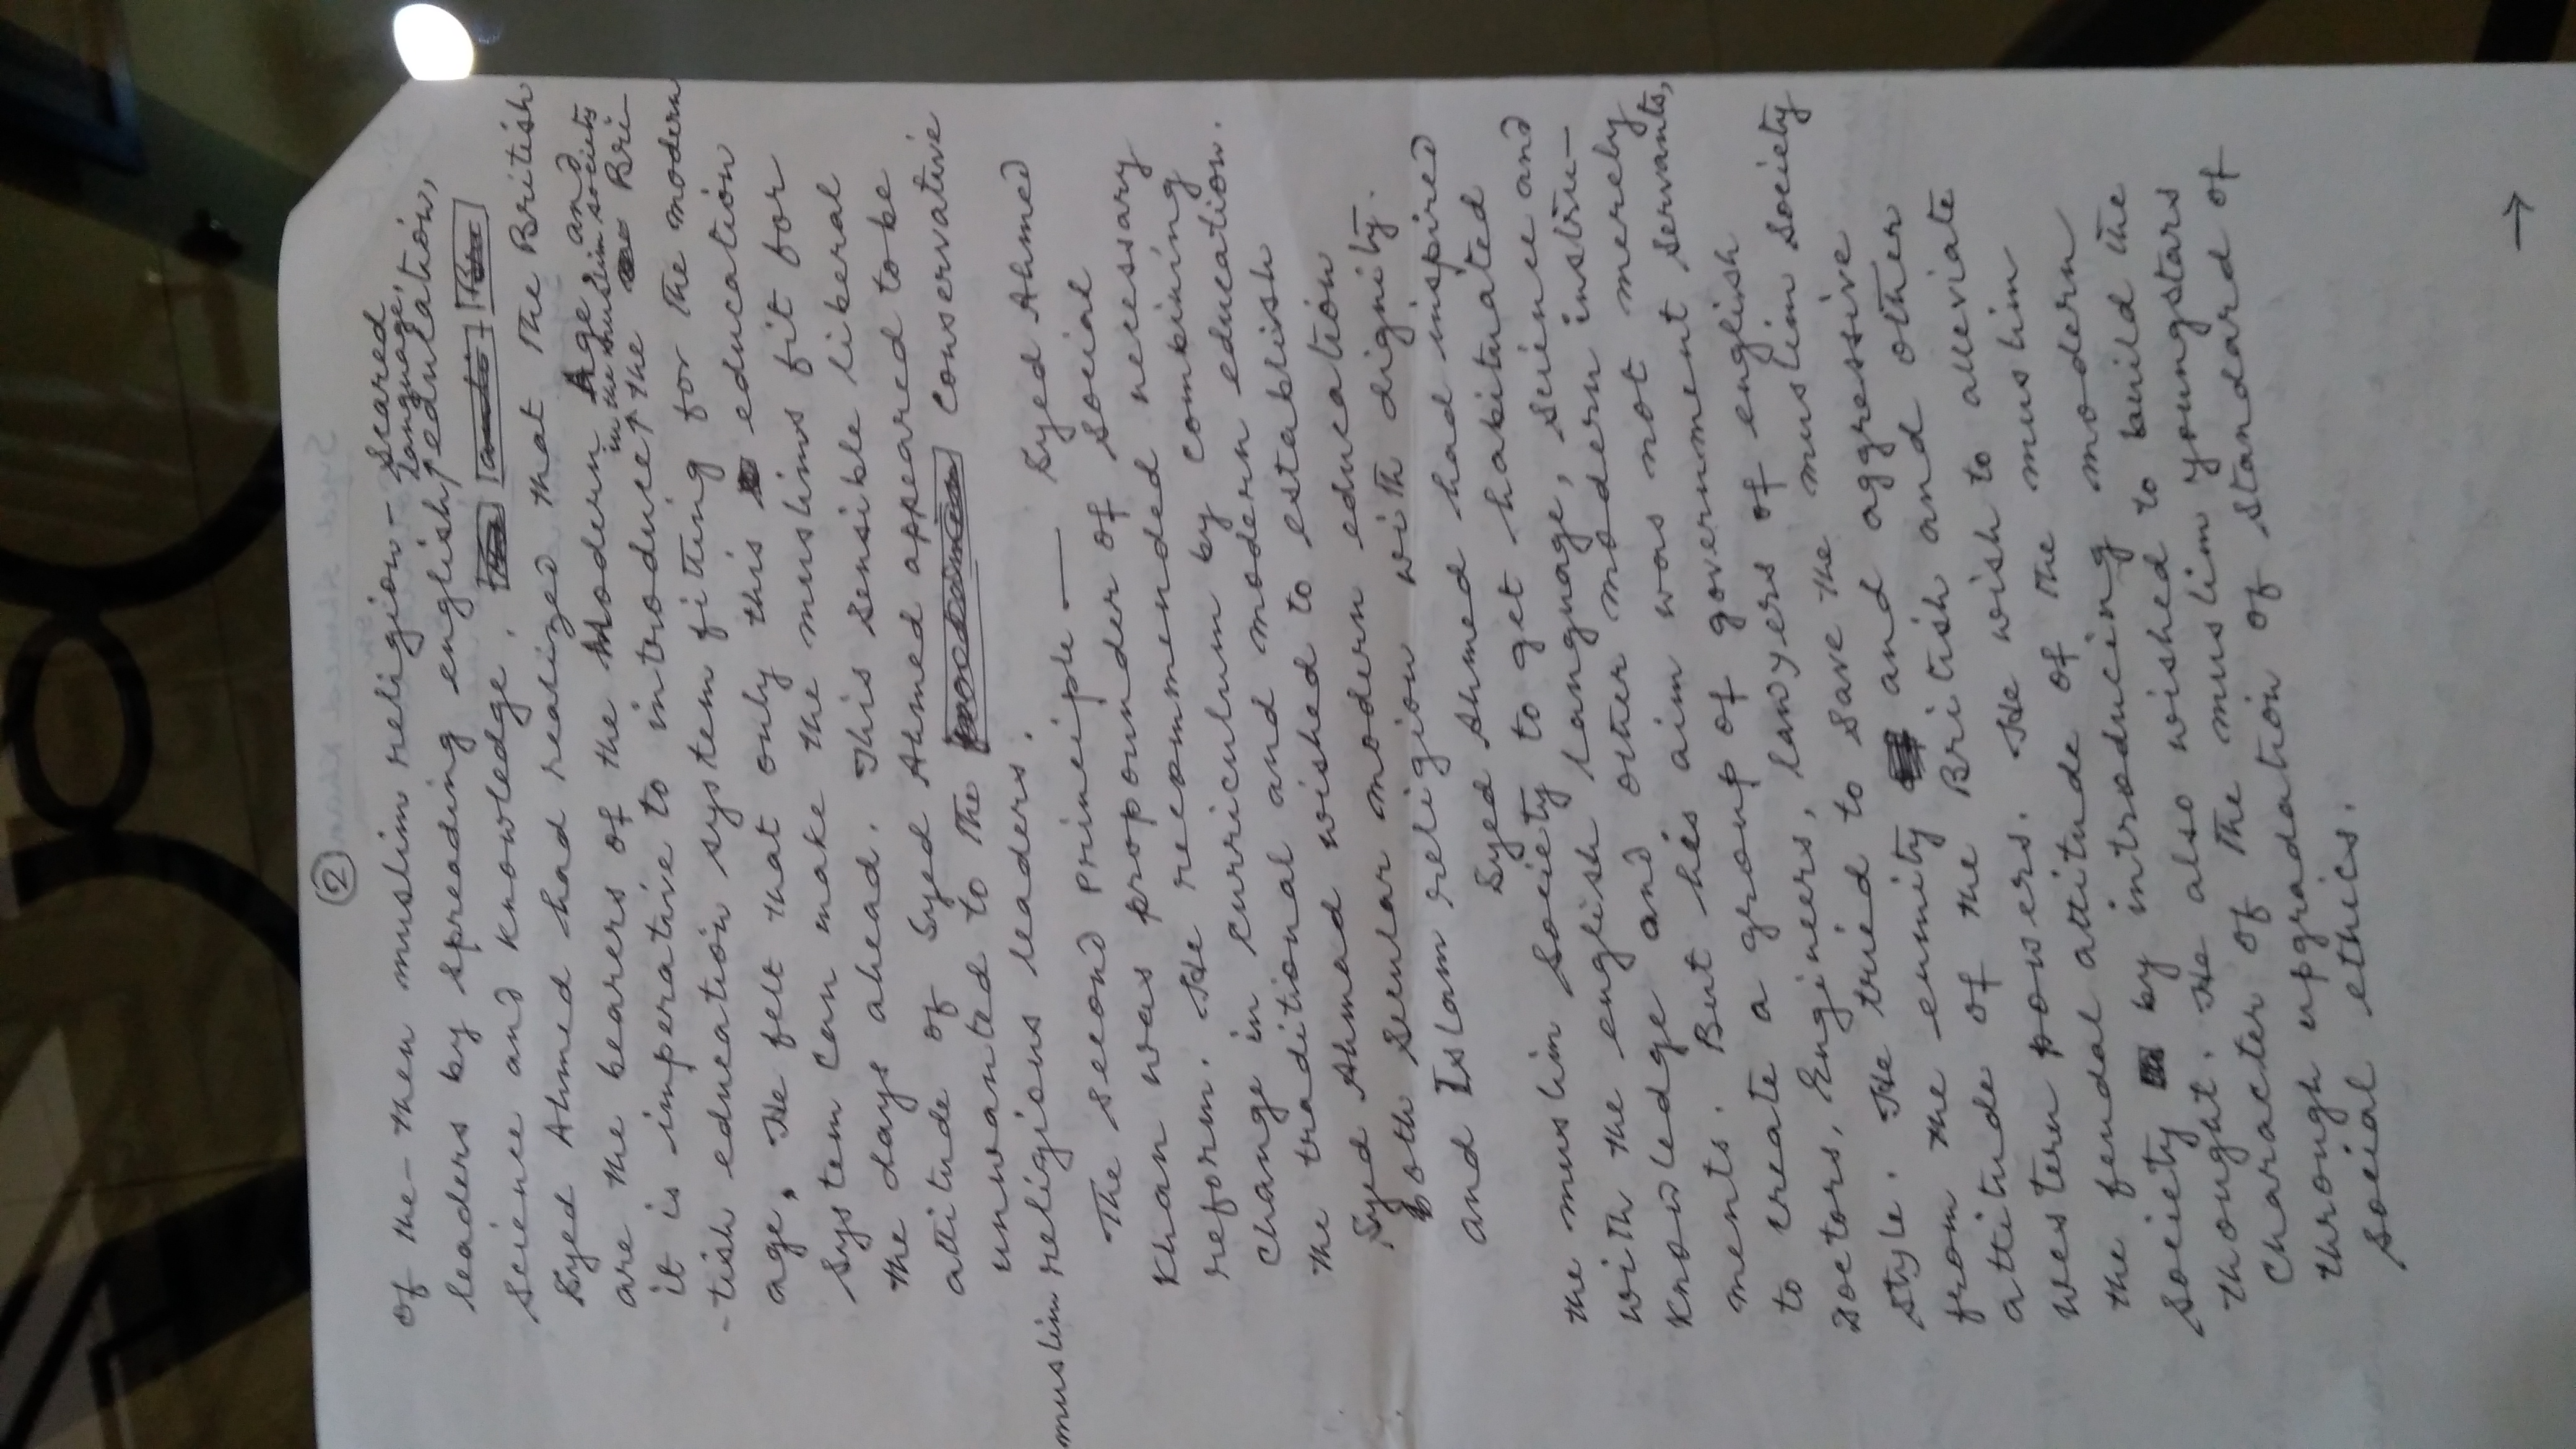 ②
of the - then muslim religion - scared
leaders by spreading english, language, education,
science and knowledge.
Syed Ahmed had realized that the British
are the bearers of the Modern Age and
it is imperative to introduce in the muslim society the Bri
-tish education system fitting for the modern
age. He felt that only this education
system can make the muslims fit for
the days ahead. This sensible liberal
attitude of Syed Ahmed appeared to be
unwanted to the conservative
muslim religious leaders.
The second Principle — Syed Ahmed
Khan was propounder of social
reform. He recommended necessary
change in curriculum by combining
the traditional and modern education.
Syed Ahmad wished to establish
both secular modern education
and Islam religion with dignity.
Syed Ahmed had inspired
the muslim society to get habituated
with the english language, science and
knowledge and other modern instru-
ments. But his aim was not merely
to create a group of government servants,
Doctors, Engineers, lawyers of english
style. He tried to save the muslim society
from the enmity and aggressive
attitude of the British and other
western powers. He wish to alleviate
the feudal attitude of the muslim
society by introducing modern
thought. He also wished to build the
character of the muslim youngstars
through upgradation of standard of
social ethics.
→